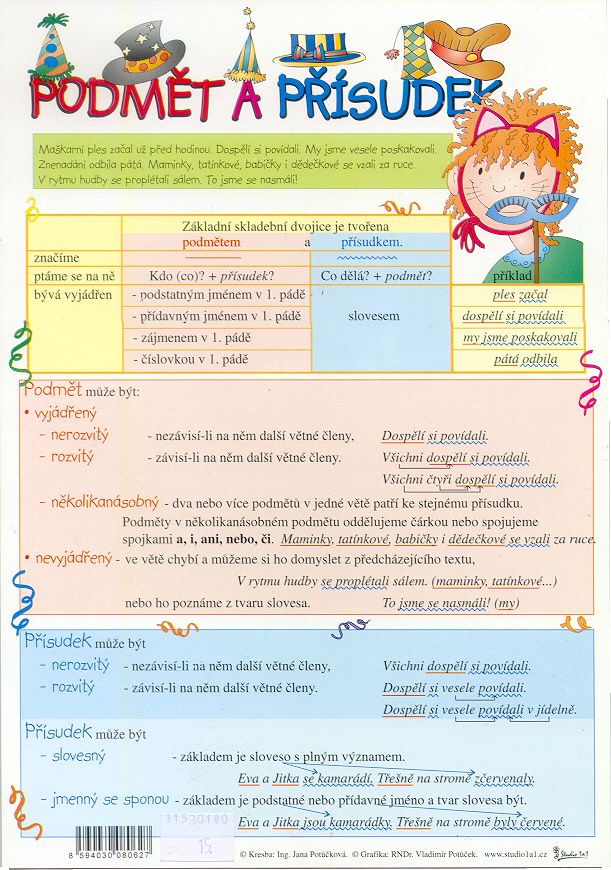 PODMĚT A PŘÍSUDEK
Maškarní ples začal už před hodinou. Dospělí si povídali. My jsme vesele poskakovali.
Znenadání odbila pátá. Maminky, tatínkové, babičky i dědečkové se vzali za ruce.
V rytmu hudby se proplétali sálem. To jsme se nasmáli!
Základní skladební dvojice je tvořena
podmětem a přísudkem.
značíme
ptáme se na ně Kdo (co)? + přísudek? Co dělá? + podmět? příklad
bývá vyjádřen - podstatným jménem v 1. pádě ples začal
- přídavným jménem v 1. pádě slovesem dospělí si povídali
- zájmenem v 1. pádě my jsme poskakovali
- číslovkou v 1. pádě pátá odbila
Podmět může být:
• vyjádřený
- nerozvitý - nezávisí-li na něm další větné členy, Dospělí si povídali.
- rozvitý - závisí-li na něm další větné členy. Všichni dospělí si povídali.
Všichni čtyři dospělí si povídali.
- několikanásobný - dva nebo více podmětů v jedné větě patří ke stejnému přísudku.
Podměty v několikanásobném podmětu oddělujeme čárkou nebo spojujeme
spojkami a, i, ani, nebo, či. Maminky, tatínkové, babičky i dědečkové se vzali za ruce.
• nevyjádřený - ve větě chybí a můžeme si ho domyslet z předcházejícího textu,
V rytmu hudby se proplétali sálem. (maminky, tatínkové...)
nebo ho poznáme z tvaru slovesa. To jsme se nasmáli! (my)
Přísudek může být
- nerozvitý - nezávisí-li na něm další větné členy, Všichni dospělí si povídali.
- rozvitý - závisí-li na něm další větné členy. Dospělí si vesele povídali.
Dospělí si vesele povídali v jídelně.
Přísudek může být
- slovesný - základem je sloveso s plným významem.
Eva a Jitka se kamarádí. Třešně na stromě zčervenaly.
- jmenný se sponou - základem je podstatné nebo přídavné jméno a tvar slovesa být.
Eva a Jitka jsou kamarádky. Třešně na stromě byly červené.
11530180
15,
8 594030 080627
© Kresba: Ing. Jana Potůčková. © Grafika: RNDr. Vladimír Potůček. www.studio1a1.cz Studio 1a1